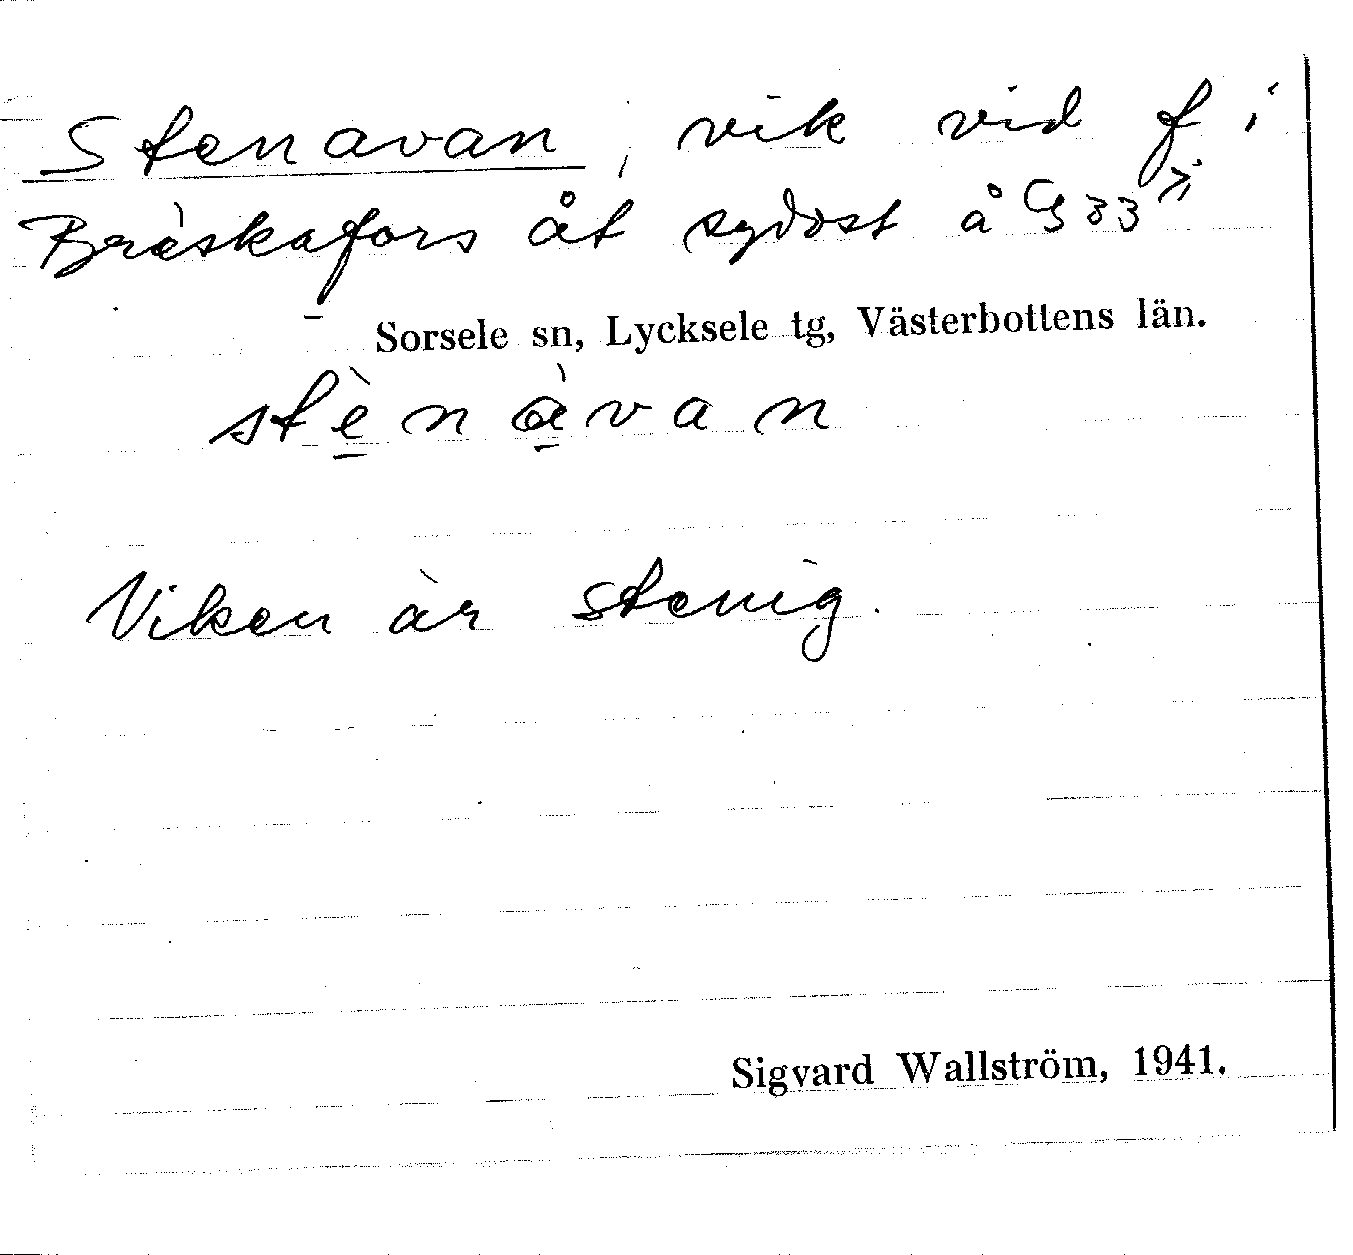 Stenavan, vik vid f i
Bräskafors åt sydost å G 33
Sorsele sn, Lycksele tg, Västerbottens län.
stènàvan
Viken är stenig.
Sigvard Wallström, 1941.